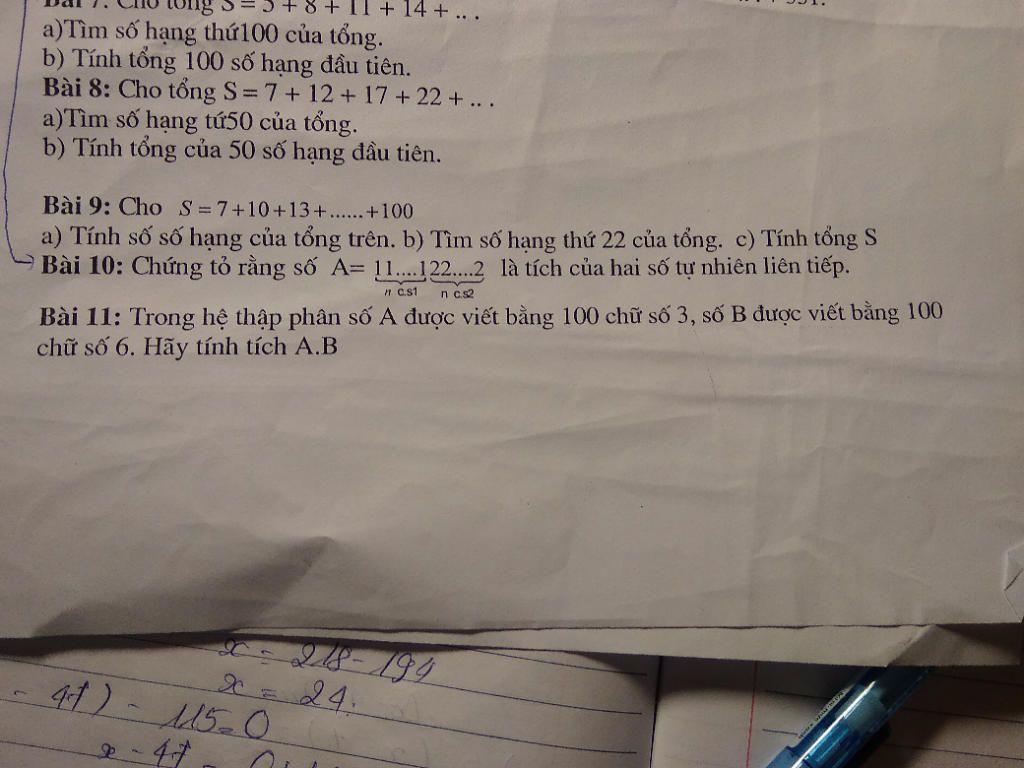 Bài 7: Cho tổng S = 5 + 8 + 11 + 14 + .. .
a)Tìm số hạng thứ100 của tổng.
b) Tính tổng 100 số hạng đầu tiên.
Bài 8: Cho tổng S = 7 + 12 + 17 + 22 + .. .
a)Tìm số hạng tứ50 của tổng.
b) Tính tổng của 50 số hạng đầu tiên.
Bài 9: Cho S = 7+10+13+......+100
a) Tính số số hạng của tổng trên. b) Tìm số hạng thứ 22 của tổng. c) Tính tổng S
Bài 10: Chứng tỏ rằng số A= 11....122....2 là tích của hai số tự nhiên liên tiếp.
n c.s1 n c.s2
Bài 11: Trong hệ thập phân số A được viết bằng 100 chữ số 3, số B được viết bằng 100
chữ số 6. Hãy tính tích A.B
x = 218 - 194
x = 24.
- 47) - 115 = 0
x - 47